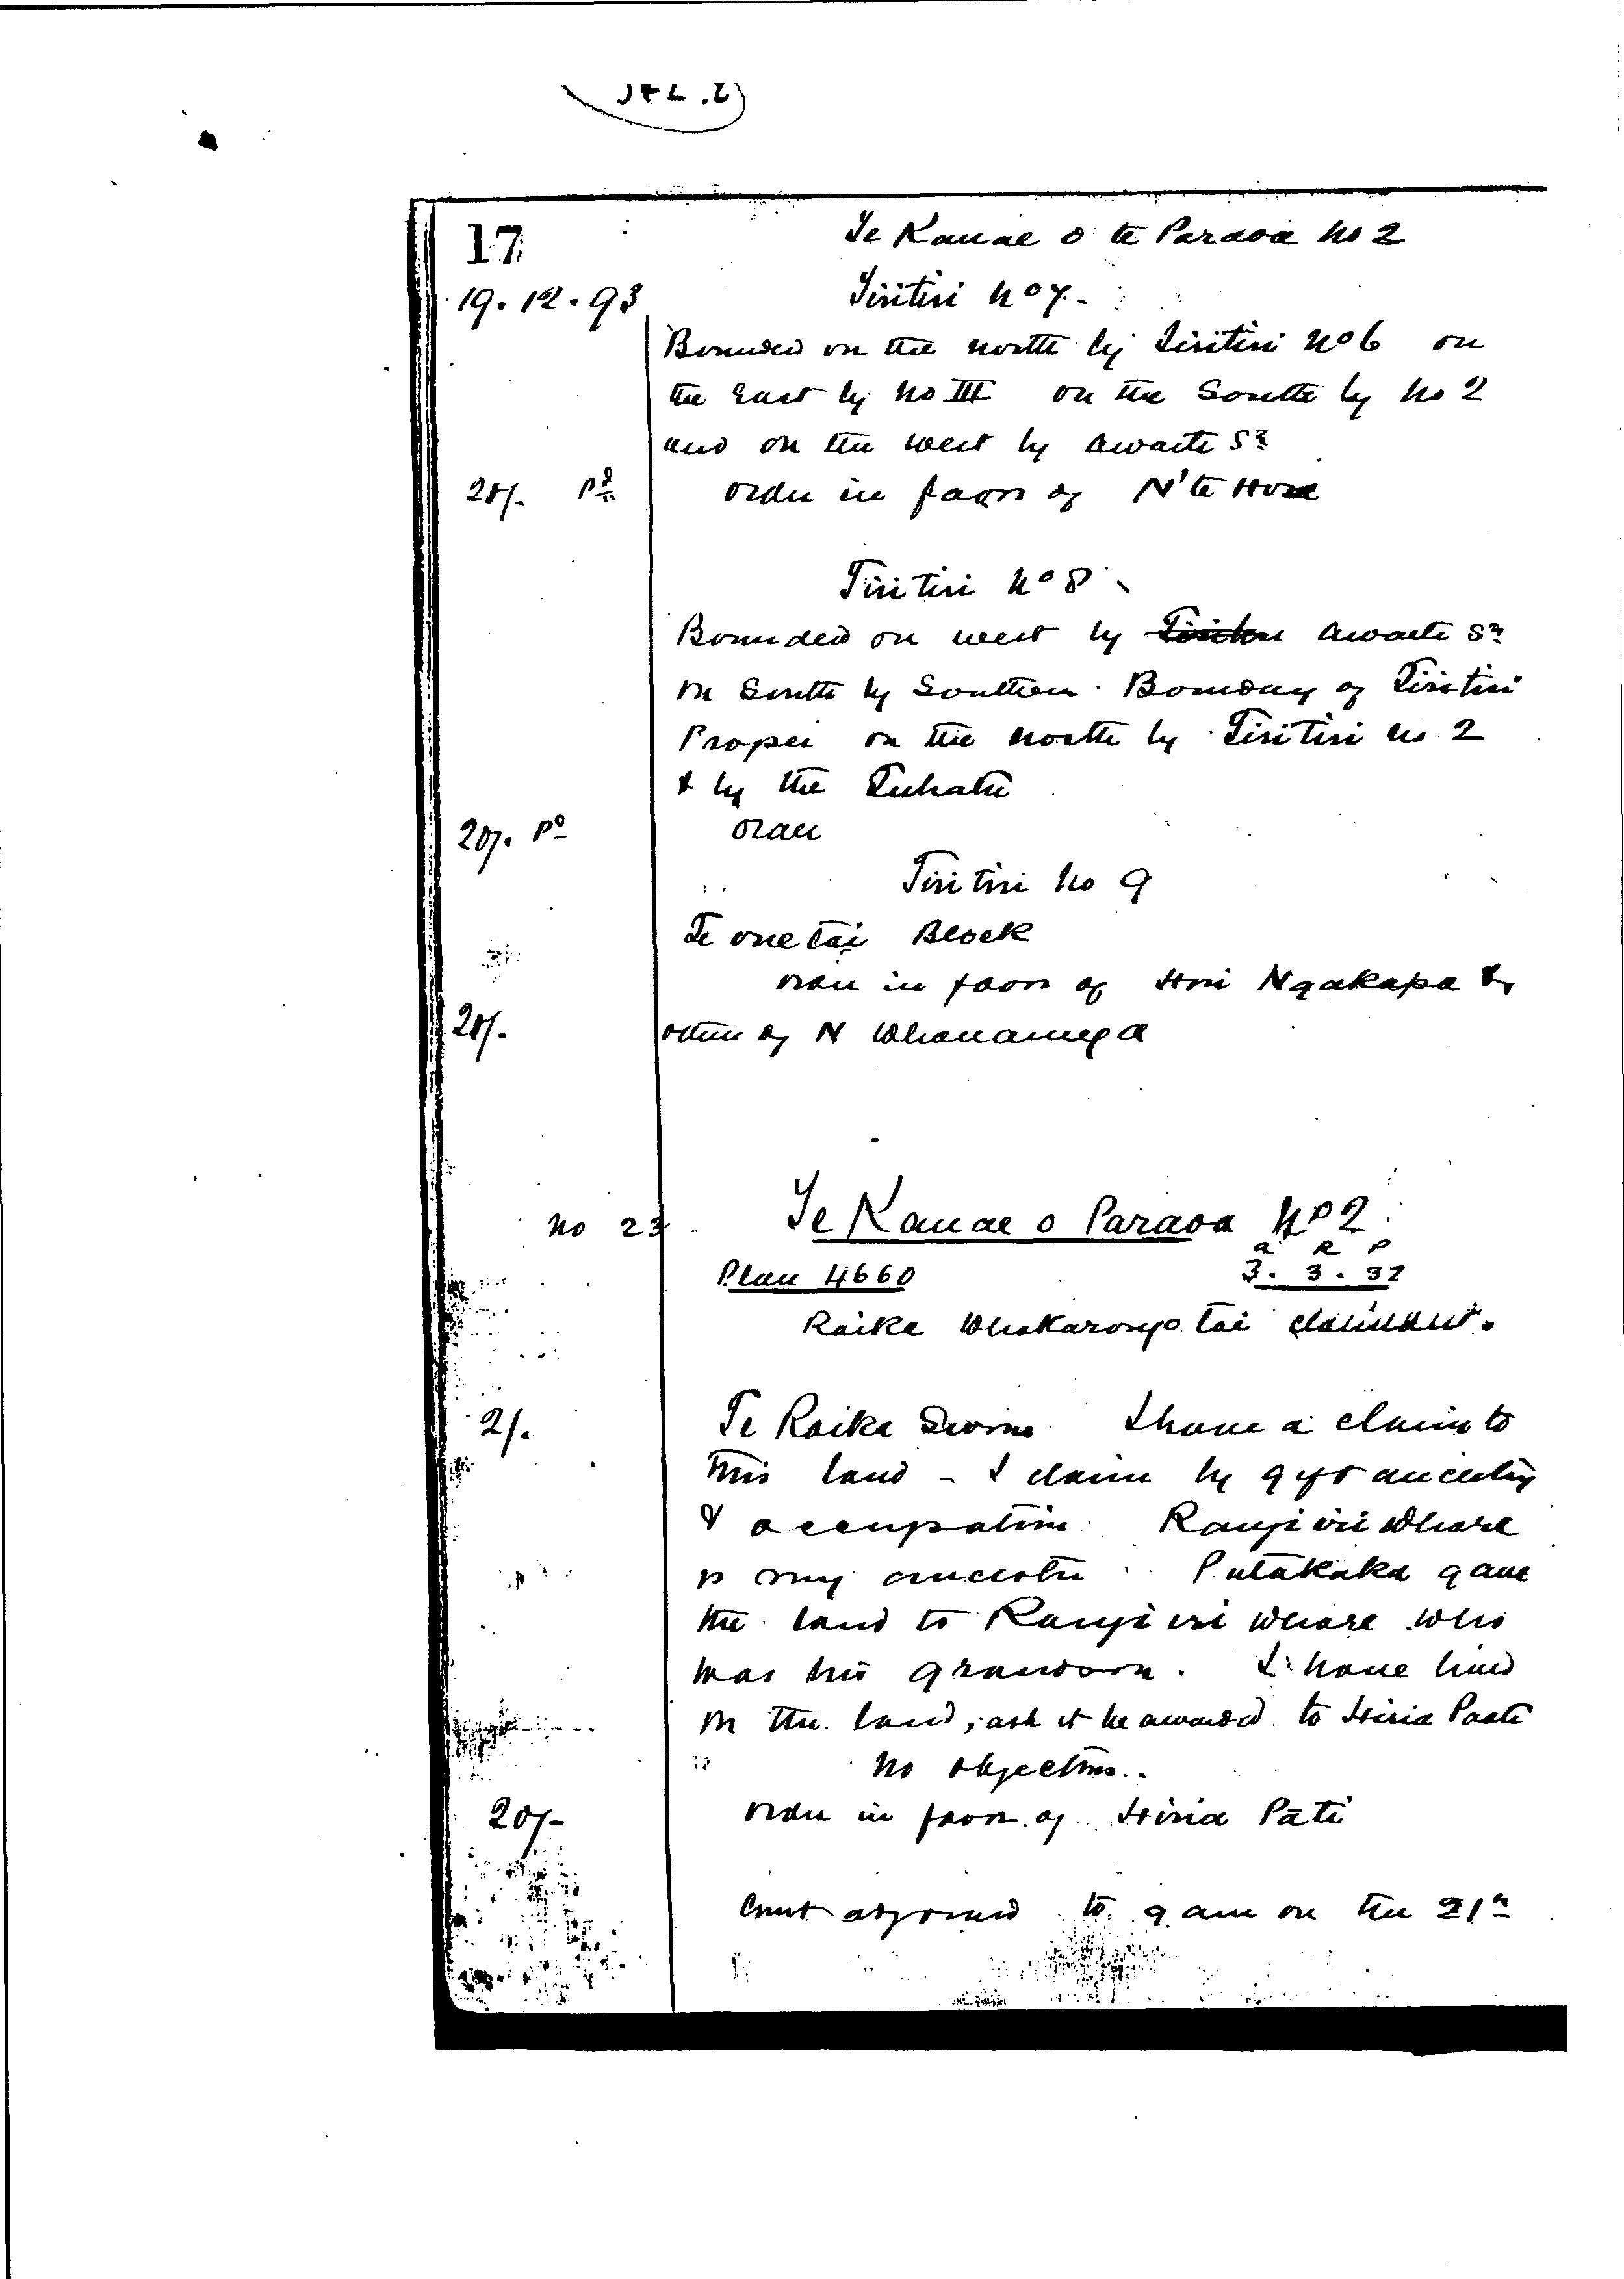 J & L. 2
17
Te Kauae o te Paraoa No 2
19.12.93
Tiritiri No 7.
Bounded on the north by Tiritiri No 6 on
the East by No III on the South by No 2
and on the west by Awaiti Sm
20/- Pd order in favor of N'te Hora
Tiritiri No 8
Bounded on west by Awaiti Sm
on South by Southern Boundary of Tiritiri
Proper on the north by Tiritiri No 2
& by the Tuhatu
20/. Pd order
Tiritiri No 9
Te onetai Block
order in favor of Hori Ngakapa &
20/. others of N Whanaunga
No 23 Te Kauae o Paraoa No 2
a R P
Plan 4660 3. 3. 32
Raika Whakarongotai claimant.
2/. Te Raika Sworn I have a claim to
this land - I claim by gift ancestry
& occupation Rangi iri Whare
is my ancestor Putakaka gave
the land to Rangi iri Whare who
was his grandson. I have lived
on the land, ask it be awarded to Hiria Paati
No objectors..
20/- order in favor of Hiria Pāti
Court adjourned to 9 am on the 21st